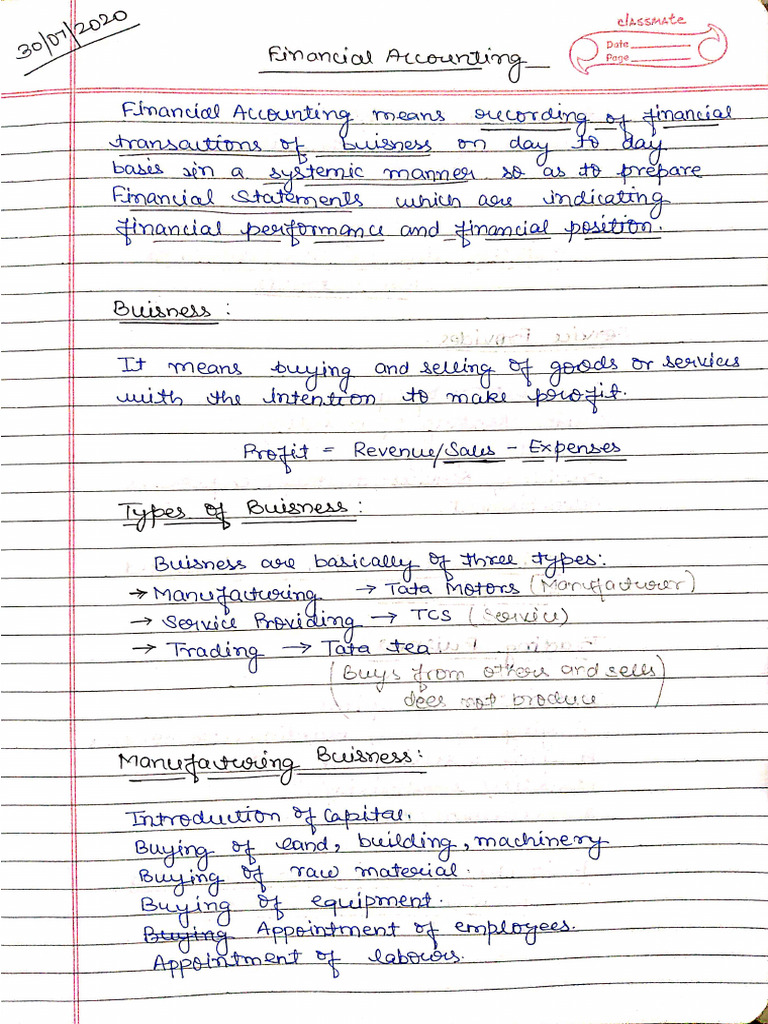 30/07/2020
classmate
Date
Page
Financial Accounting
Financial Accounting means recording of financial
transactions of buisness on day to day
basis in a systemic manner so as to prepare
Financial Statements which are indicating
financial performance and financial position.
Buisness :
It means buying and selling of goods or services
with the intention to make profit.
Profit = Revenue/Sales - Expenses
Types of Buisness :
Buisness are basically of three types:
→ Manufacturing → Tata Motors (Manufacturer)
→ Service Providing → TCS (Service)
→ Trading → Tata tea
(Buys from others and sells
does not produce)
Manufacturing Buisness:
Introduction of capital.
Buying of land, building, machinery
Buying of raw material.
Buying of equipment.
Buying Appointment of employees.
Appointment of labours.